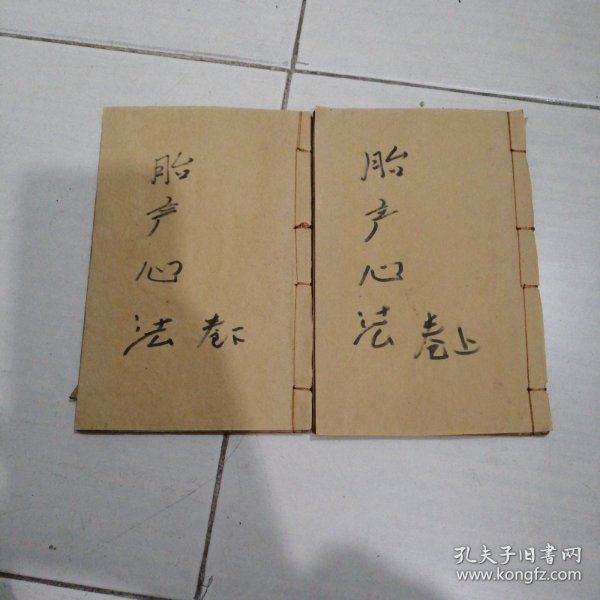 胎产心法 卷下
胎产心法 卷上
孔夫子旧書网
www.kongfz.com